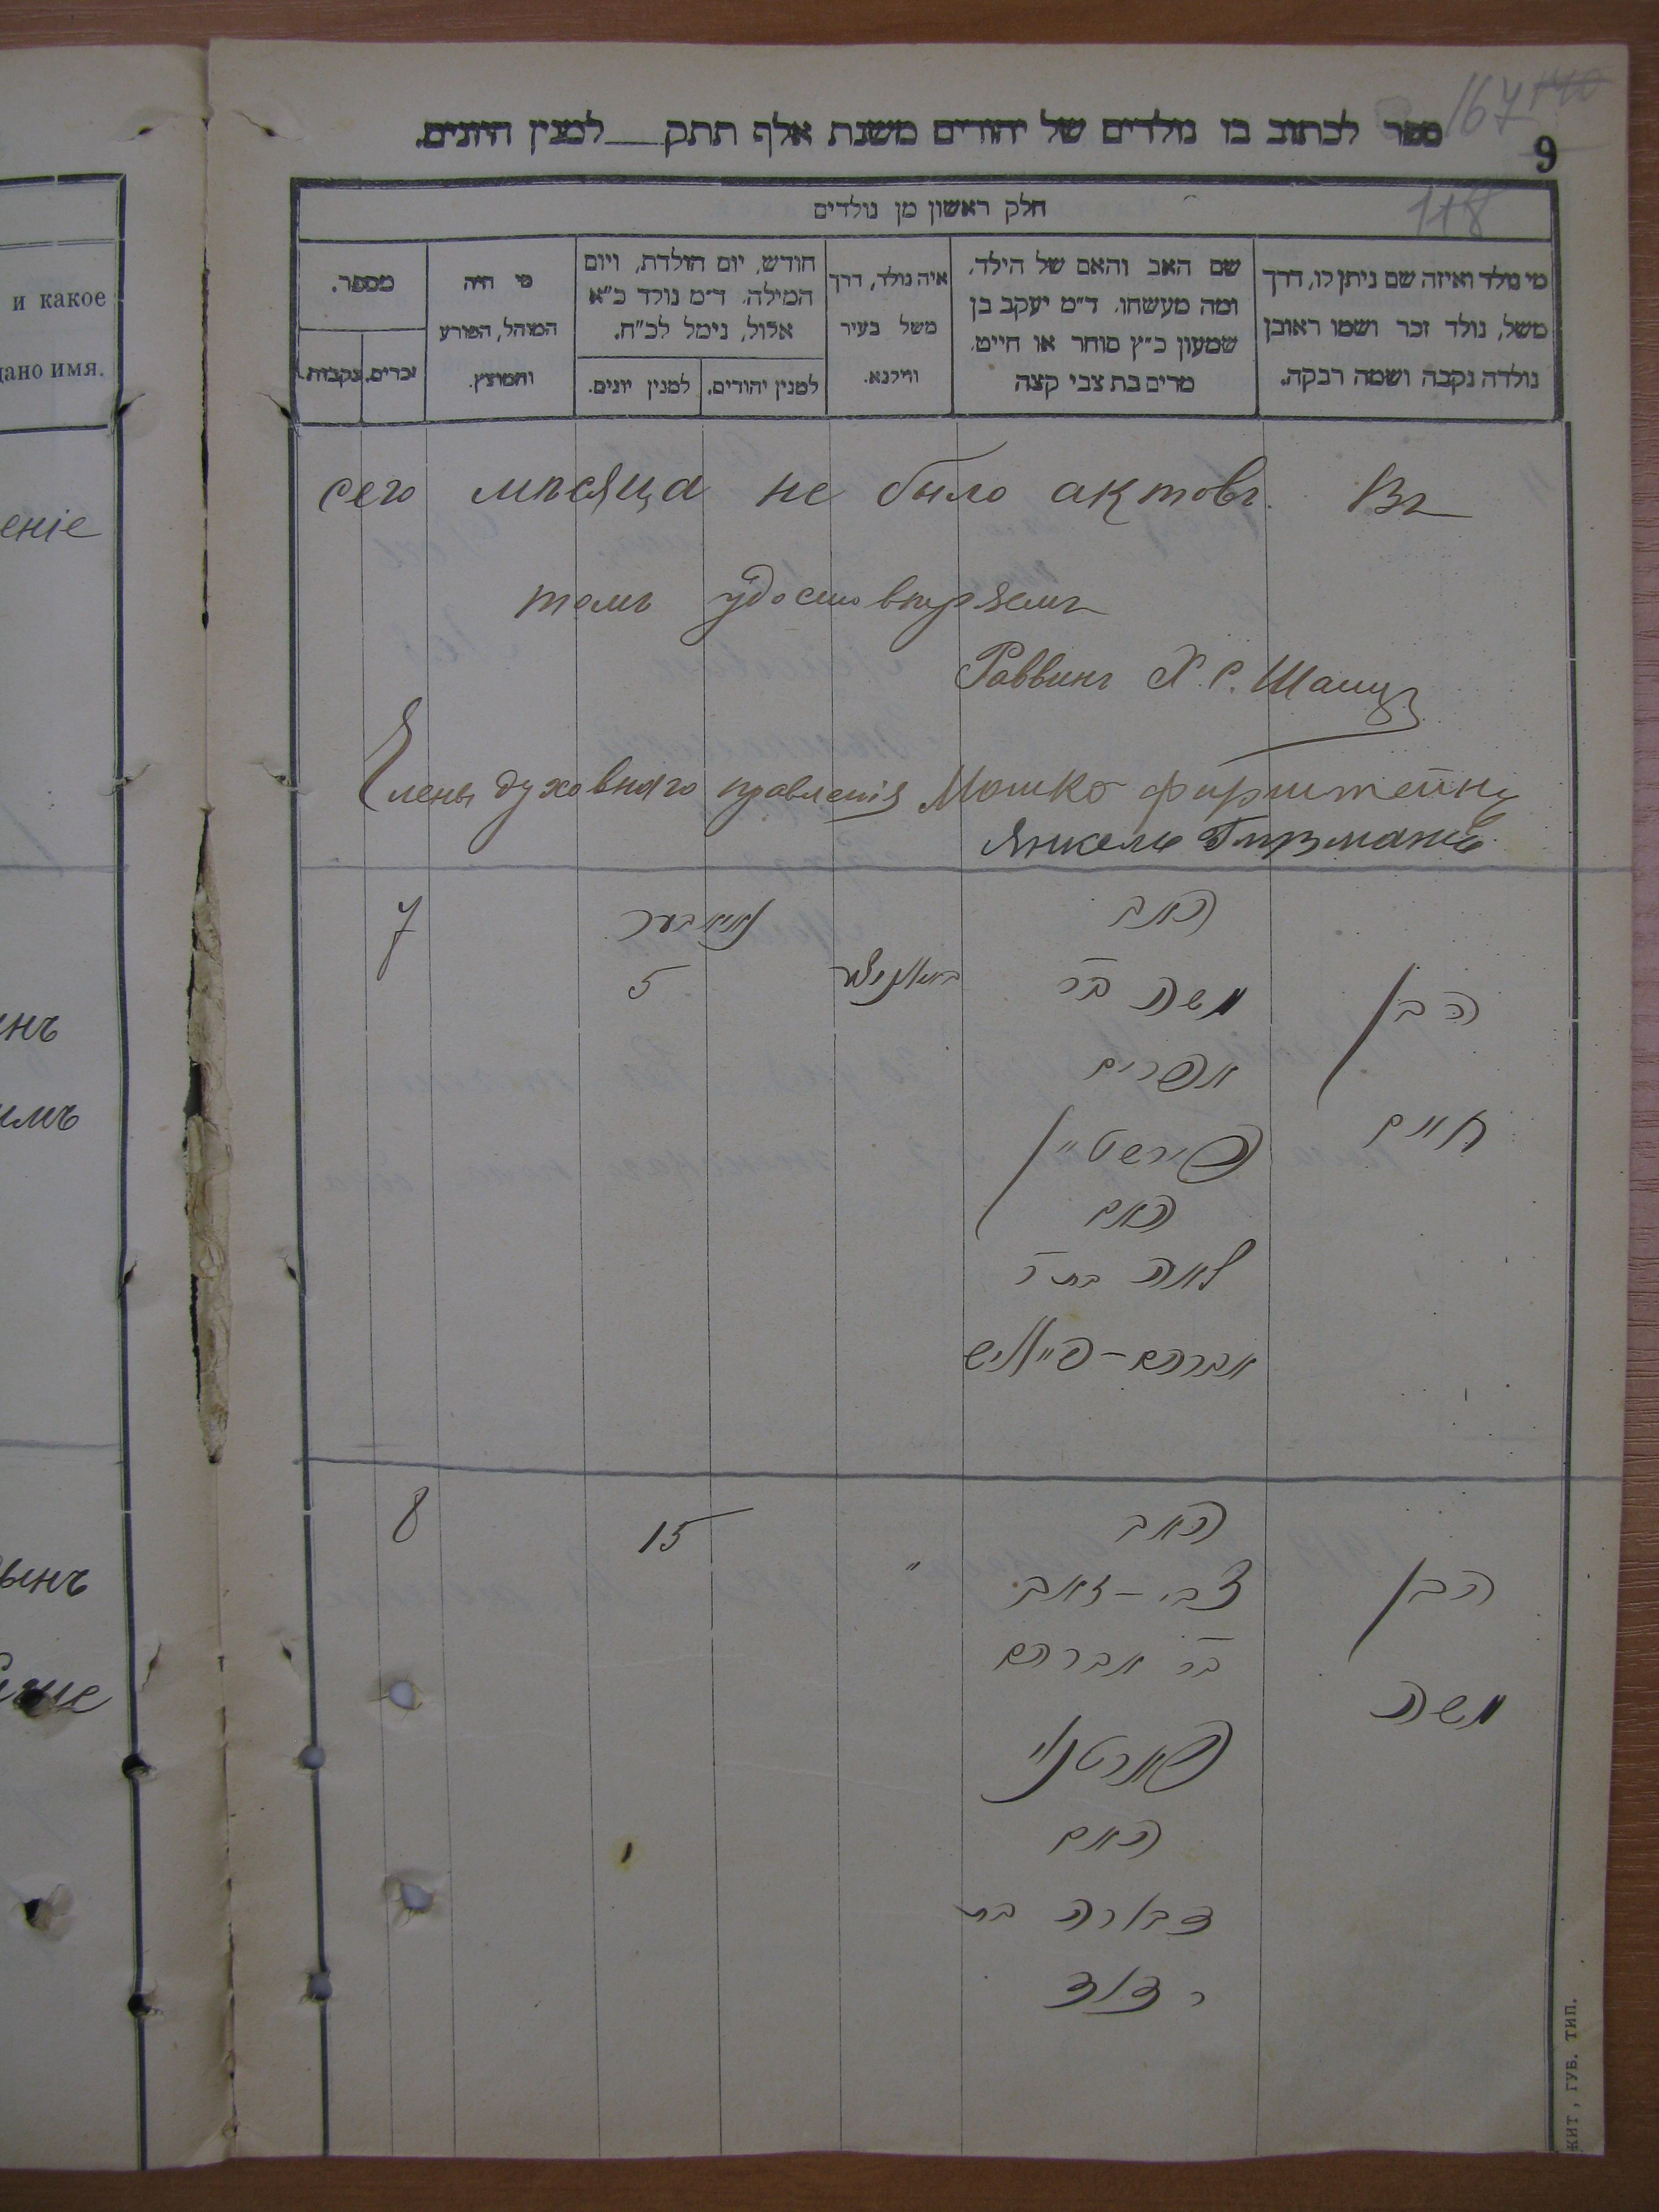 167 140
ספר לכתוב בו נולדים של יהודים משנת אלף תתק___למנין היונים.
9
118
חלק ראשון מן נולדים
מי נולד ואיזה שם ניתן לו, דרך
משל, נולד זכר ושמו ראובן
נולדה נקבה ושמה רבקה.
שם האב והאם של הילד,
ומה מעשהו. ד״מ יעקב בן
שמעון כ״ץ סוחר או חייט.
מרים בת צבי קצה
איה נולד, דרך
משל בעיר
ווילנא.
חודש, יום הולדת, ויום
המילה. ד״מ נולד כ״א
אלול, נימל לכ״ח.
למנין יהודים.
למנין יונים.
מי היה
המוהל, הפורע
והמוצץ.
מספר.
זכרים.
נקבות.
сего мѣсяца не было актовъ. Въ
томъ удостовѣряемъ
Раввинъ Х. С.
Члены духовнаго правленія Мошко Фирштейнъ
Янкель
7
נאיאבער
5
האב
משה בר
אפרים
פירשטיין
האם
לאה בת ר
אברהם-
הבן
חיים
8
15
"
האב
צבי-זאב
בר אברהם
פארטנוי
האם
דבורה בת
ר דוד
הבן
משה
и какое
дано имя.
еніе
инъ
имъ
ынъ
ЖИТ, ГУБ. ТИП.